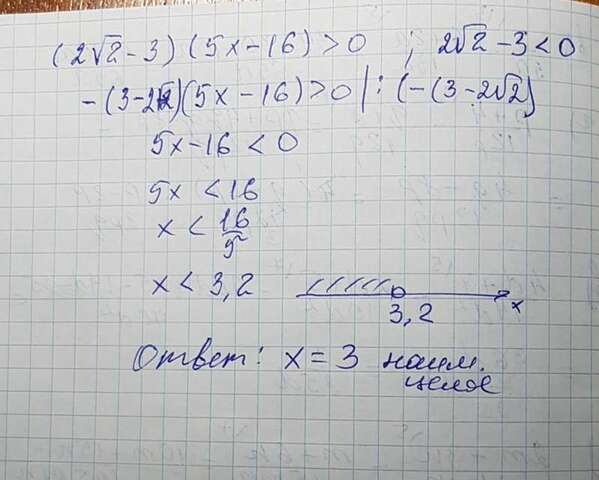 (2√2-3)(5x-16)>0 ; 2√2-3<0
-(3-2√2)(5x-16)>0 |:(-(3-2√2)
5x-16<0
5x<16
x<16/5
x<3,2
3,2 x
Ответ: x=3 наим.
целое